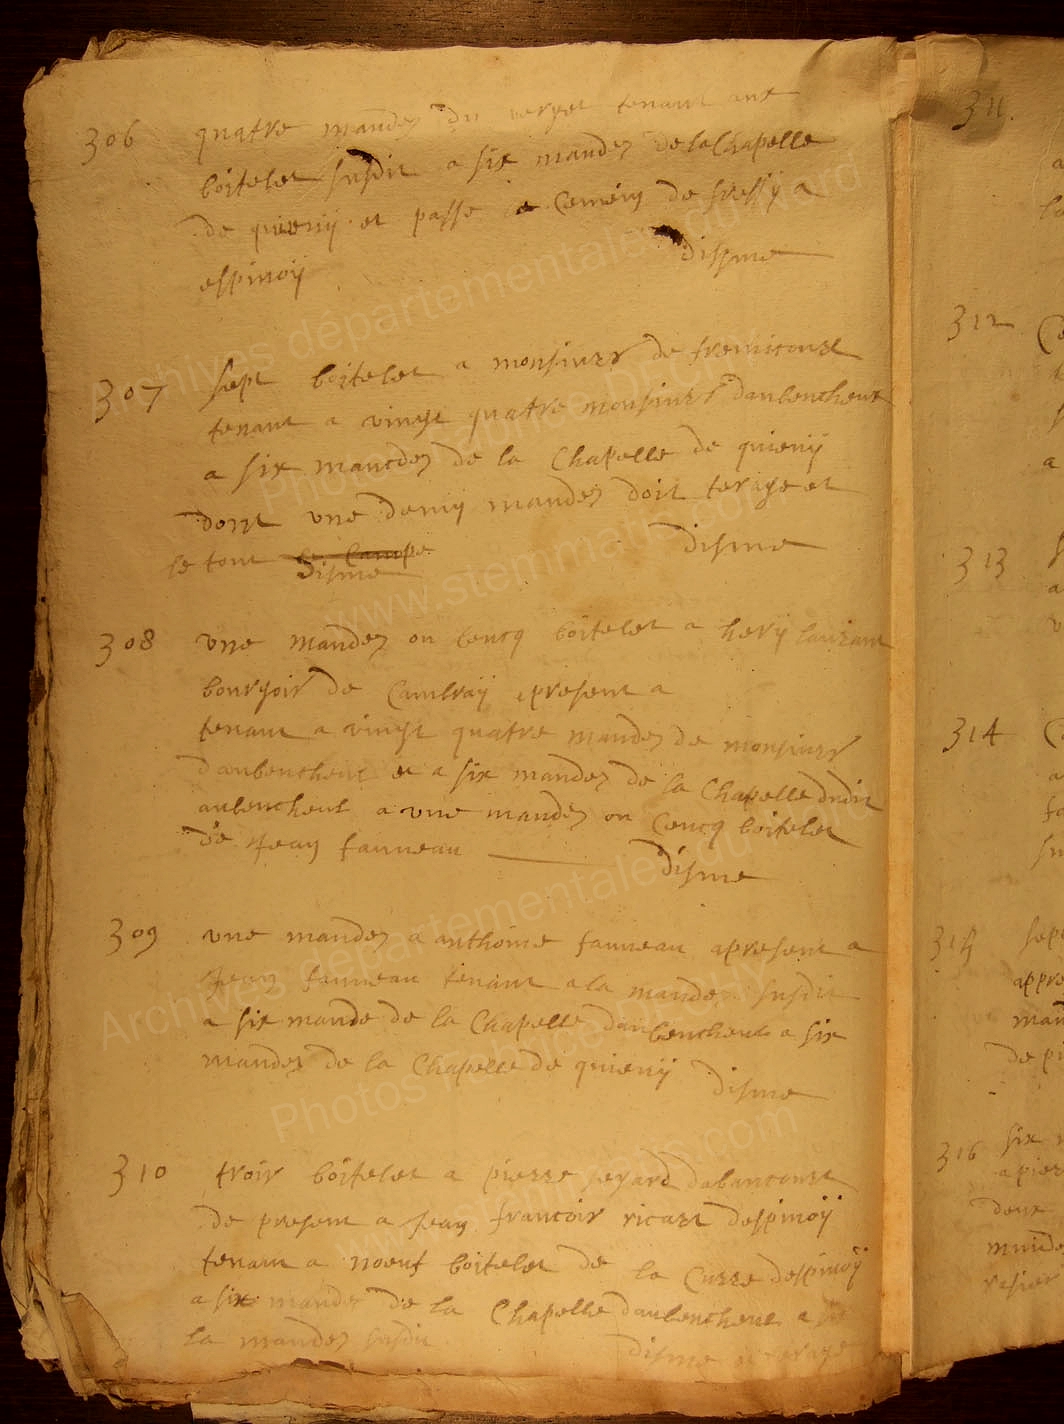 306 quatre mandez du verger tenant aux
boitelet susdit a six mandez de la Chapelle
de quieny et passe le Cemeny de fressÿ a
espinoÿ disme
307 sept boitelet a monsieur de fremicourt
tenant a vingt quatre monsieur daubencheut
a six mancdez de la Chapelle de quienÿ
dont une demy mandez doit terage et
disme
le tout
disme
308 une mandez ou cencq boitelet a herÿ laurant
bourgois de Cambraÿ apresent a
tenant a vingt quatre mandez de monsieur
daubencheut et a six mandez de la Chapelle dudit
aubencheut a une mandez ou Cencq boitelet
de Jean fauveau disme
309 une mandez a anthoine fauveau apresent a
Jean fauveau tenant a la mandez susdit
a six mande de la Chapelle daubencheut a six
mandez de la Chapelle de quienÿ disme
310 trois boitelet a pierre dabancourt
de present a Jean francois ricart despinoÿ
tenant a noeuf boitelet de la Curre despinoÿ
a six mandez de la Chapelle daubencheut a
la mandez susdit disme terage
311.
312
313
314
315 sept
appre
man
de pi
316 six
a pier
deux
mande
Archives départementales du Nord
Photos
www.stemmatis.com
Archives départementales du Nord
Photos
www.stemmatis.com